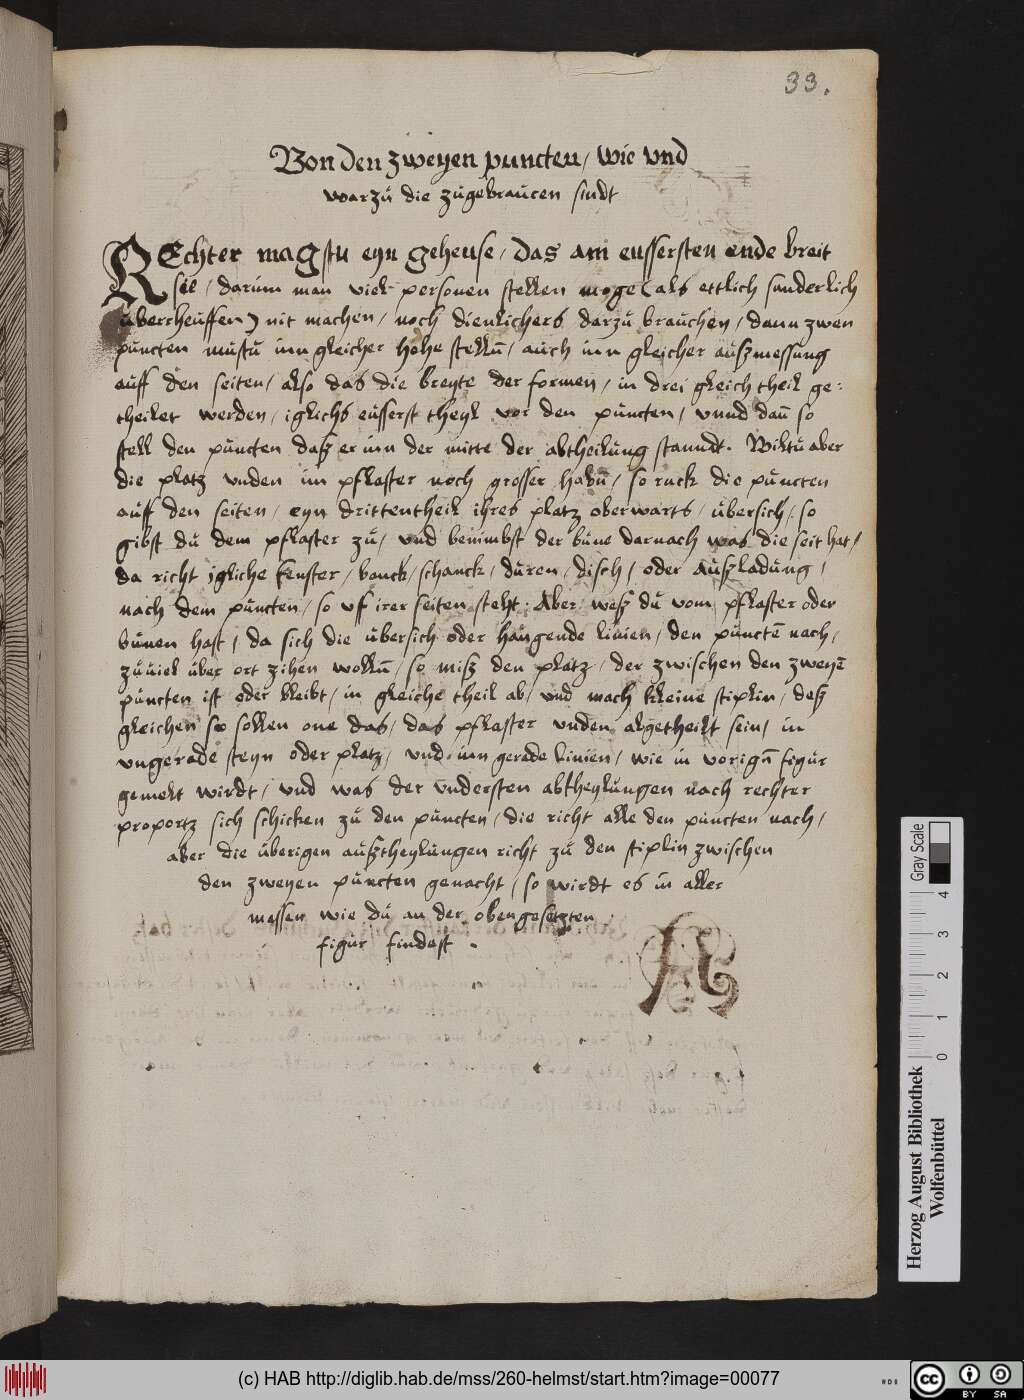 33.
Von den zweyen puncten / wie vnd
warzü die zügebraücen sindt
REchter magstu eyn geheuse / das am eussersten ende breit
sie / darüm man viel personen stellen moge (als ettlich sunderlich
überrheüffen) nit machen / noch dienlichers darzü braüchen / dann zwen
püncten müstü inn gleicher hohe stellñ / aüch inn gleicher aüßmessüng
aüff den seiten / also das die breyte der formen / in drei gleich theil ge:
theilet werden / iglichs eüsserst theyl vor den püncten / vnnd dañ so
stell den püncten daß er inn der mitte der abtheilüng stanndt. Wiltü aber
die platz vnden im pflaster noch grosser habñ / so ruck die püncten
aüff den seiten / eyn drittentheil ihres platz oberwarts / übersich / so
gibst dü dem pflaster zü / vnd benimbst der büne darnach was die seit hat /
da richt jgliche fenster / banck / schanck / düren / disch / oder aüßladüng /
nach dem püncten / so vf irer seiten steht. Aber weß dü vom pflaster oder
bünen hast / da sich die übersich oder hangende linien / den pünctẽ nach /
züuiel über ort zihen wollñ / so miß den platz / der zwischen den zweyẽ
püncten ist oder bleibt / in gleiche theil ab / vnd mach kleine stiplin / deß
gleichen so sollen one das / das pflaster vnden abgetheilt sein / in
vngerade steyn oder platz / vnd inn gerade linien / wie in vorigñ figür
gemelt wirdt / vnd was der vndersten abtheylüngen nach rechter
proportz sich schicken zü den püncten / die richt alle den püncten nach /
aber die überigen aüßtheylüngen richt zü den stiplin zwischen
den zweyen püncten gemacht / so wirdt es in aller
massen wie dü an der obengesetzten
figür findest .
Herzog August Bibliothek
Wolfenbüttel
Gray Scale
0 1 2 3 4
(c) HAB http://diglib.hab.de/mss/260-helmst/start.htm?image=00077
cc BY SA